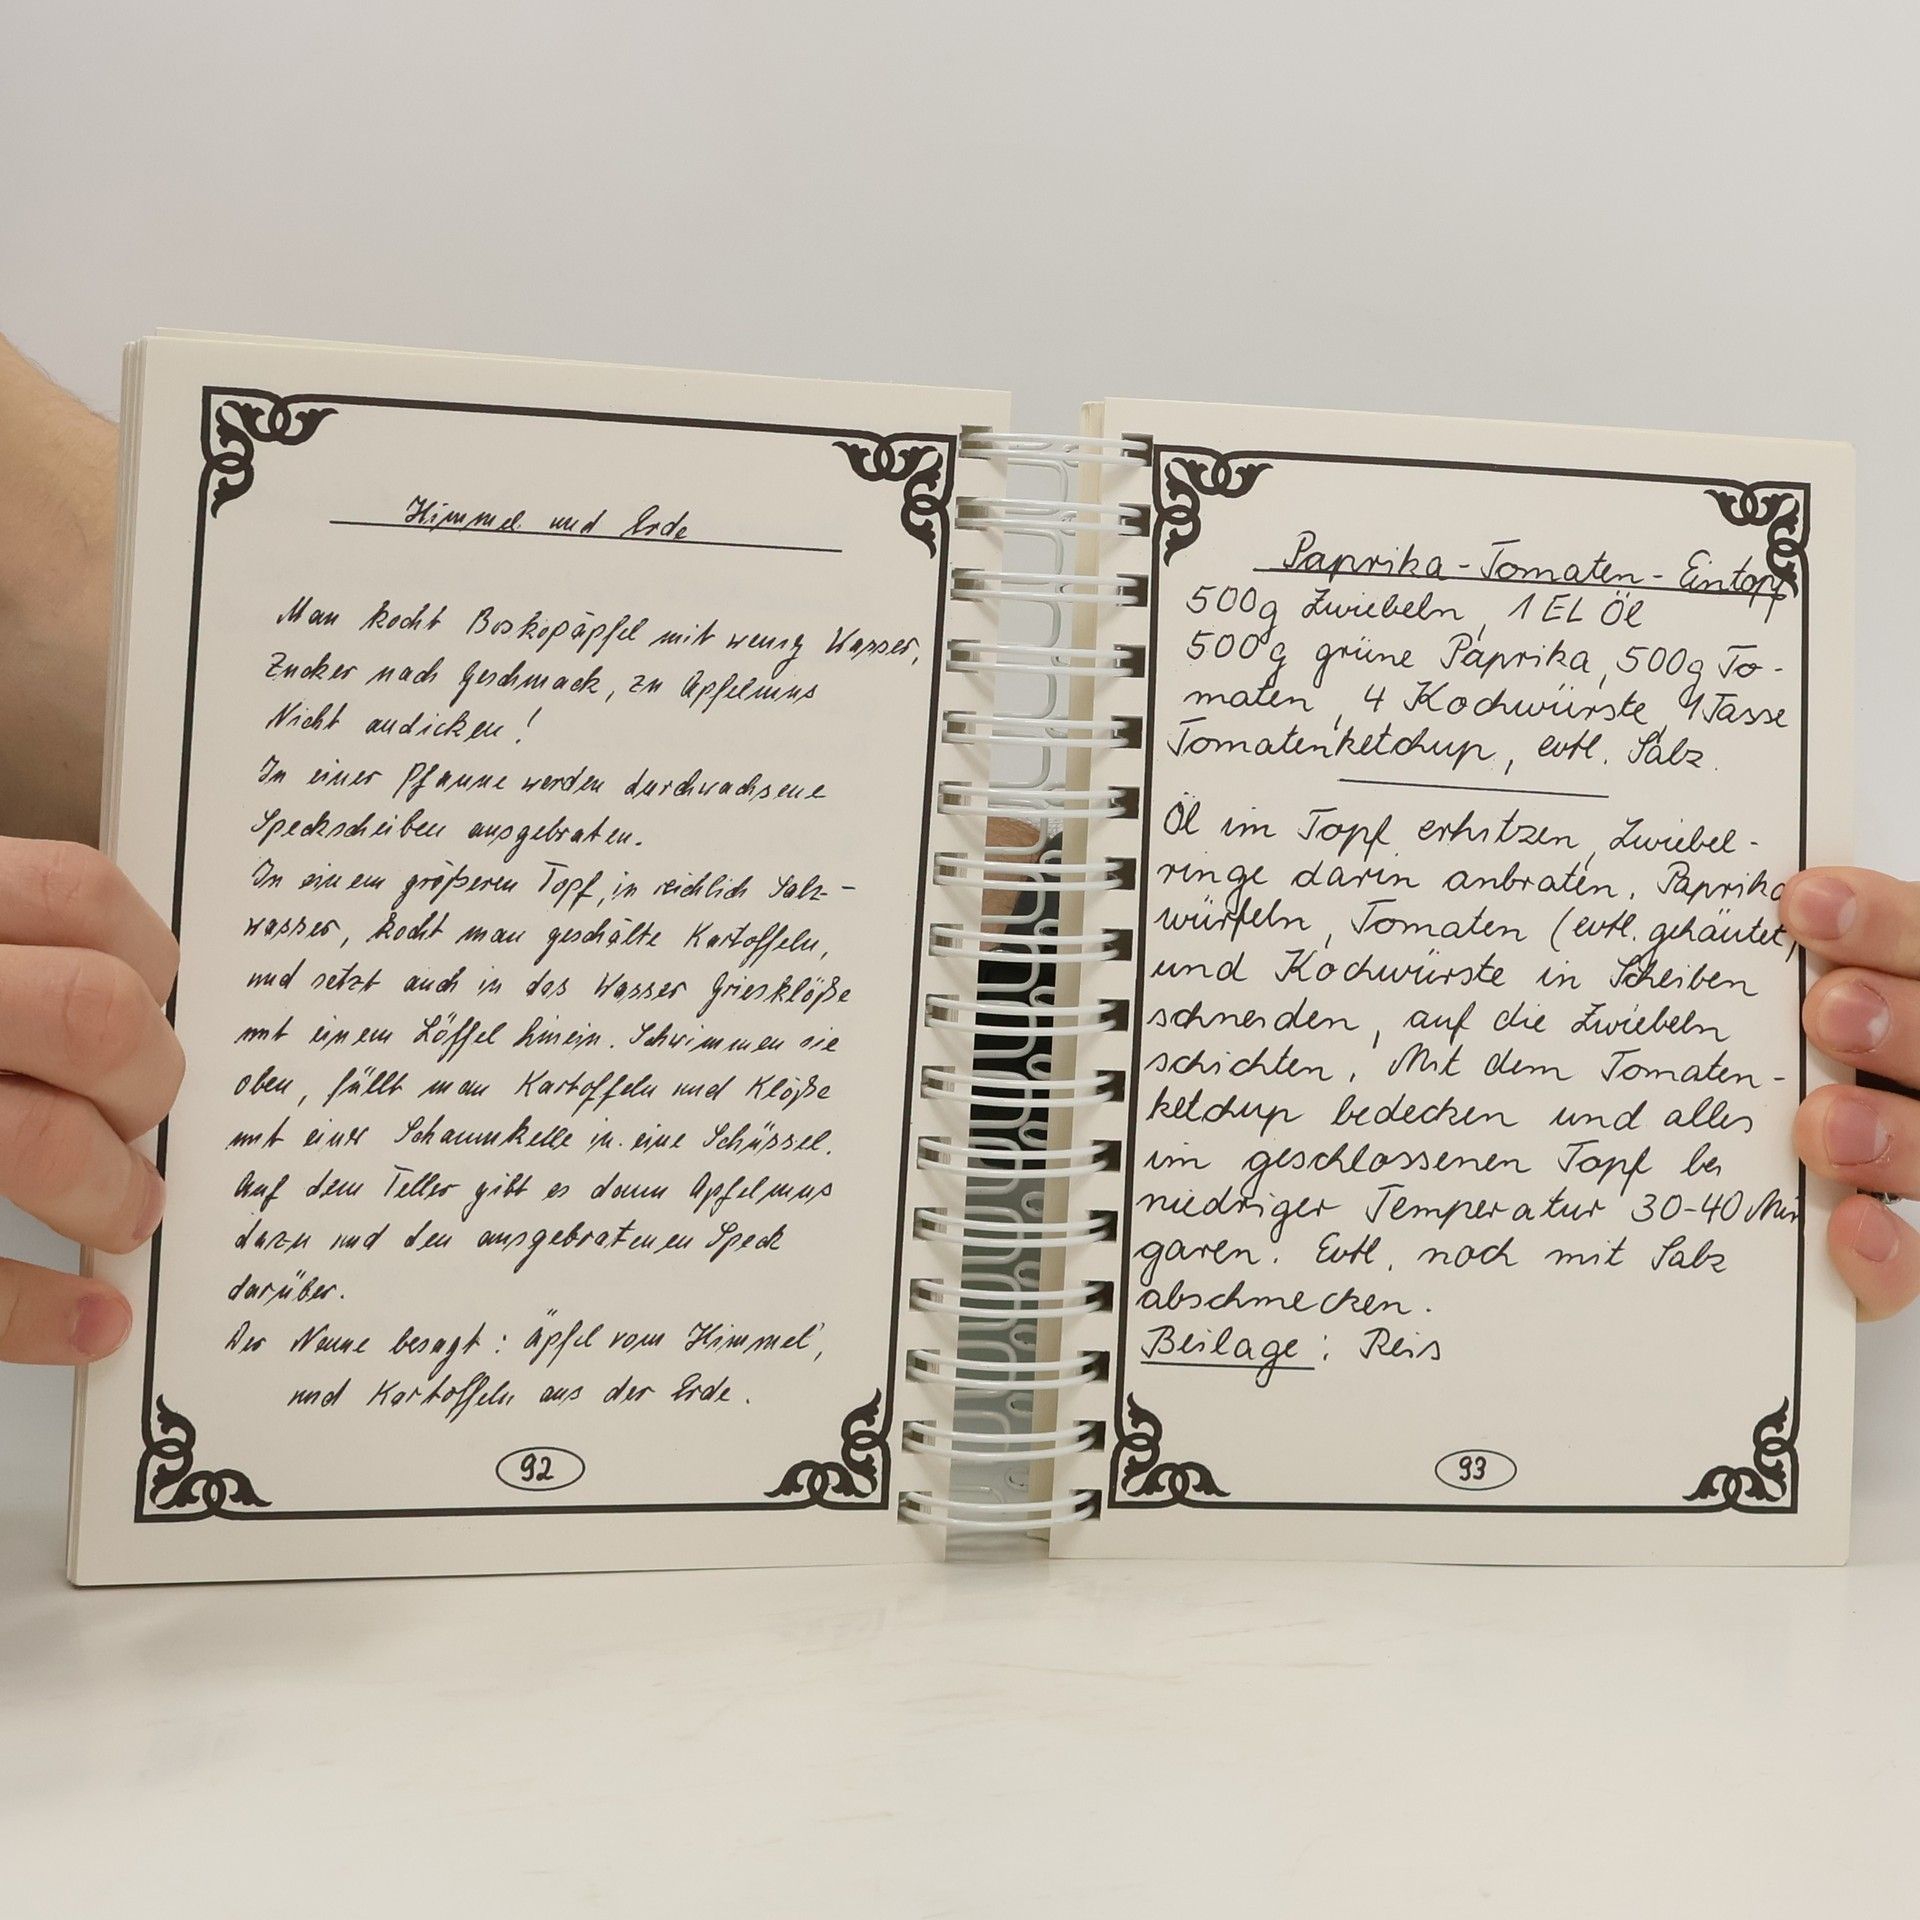 Himmel und Erde
Man kocht Boskopäpfel mit wenig Wasser,
Zucker nach Geschmack, zu Apfelmus
Nicht andicken!
In einer Pfanne werden durchwachsene
Speckscheiben ausgebraten.
In einem größeren Topf, in reichlich Salz-
wasser, kocht man geschälte Kartoffeln,
und setzt auch in das Wasser Griesklöße
mit einem Löffel hinein. Schwimmen sie
oben, füllt man Kartoffeln und Klöße
mit einer Schaumkelle in eine Schüssel.
Auf dem Teller gibt es dann Apfelmus
dazu und den ausgebratenen Speck
darüber.
Der Name besagt: Äpfel vom Himmel,
und Kartoffeln aus der Erde.
92
Paprika-Tomaten-Eintopf
500g Zwiebeln, 1 EL Öl
500g grüne Paprika, 500g To-
maten, 4 Kochwürste, 1 Tasse
Tomatenketchup, evtl. Salz.
Öl im Topf erhitzen, Zwiebel-
ringe darin anbraten. Paprika
würfeln, Tomaten (evtl. gehäutet)
und Kochwürste in Scheiben
schneiden, auf die Zwiebeln
schichten. Mit dem Tomaten-
ketchup bedecken und alles
im geschlossenen Topf bei
niedriger Temperatur 30-40 Min
garen. Evtl. noch mit Salz
abschmecken.
Beilage: Reis
93